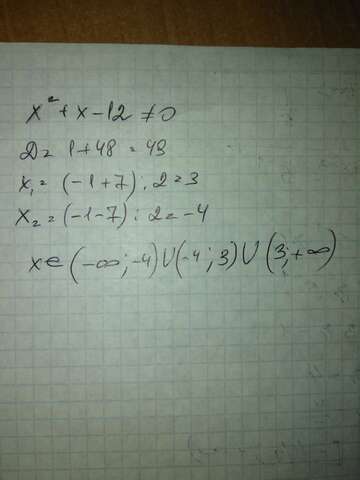 x² + x - 12 ≠ 0
D = 1 + 48 = 49
x₁ = (-1 + 7) : 2 = 3
x₂ = (-1 - 7) : 2 = -4
x ∈ (-∞; -4) ∪ (-4; 3) ∪ (3; +∞)